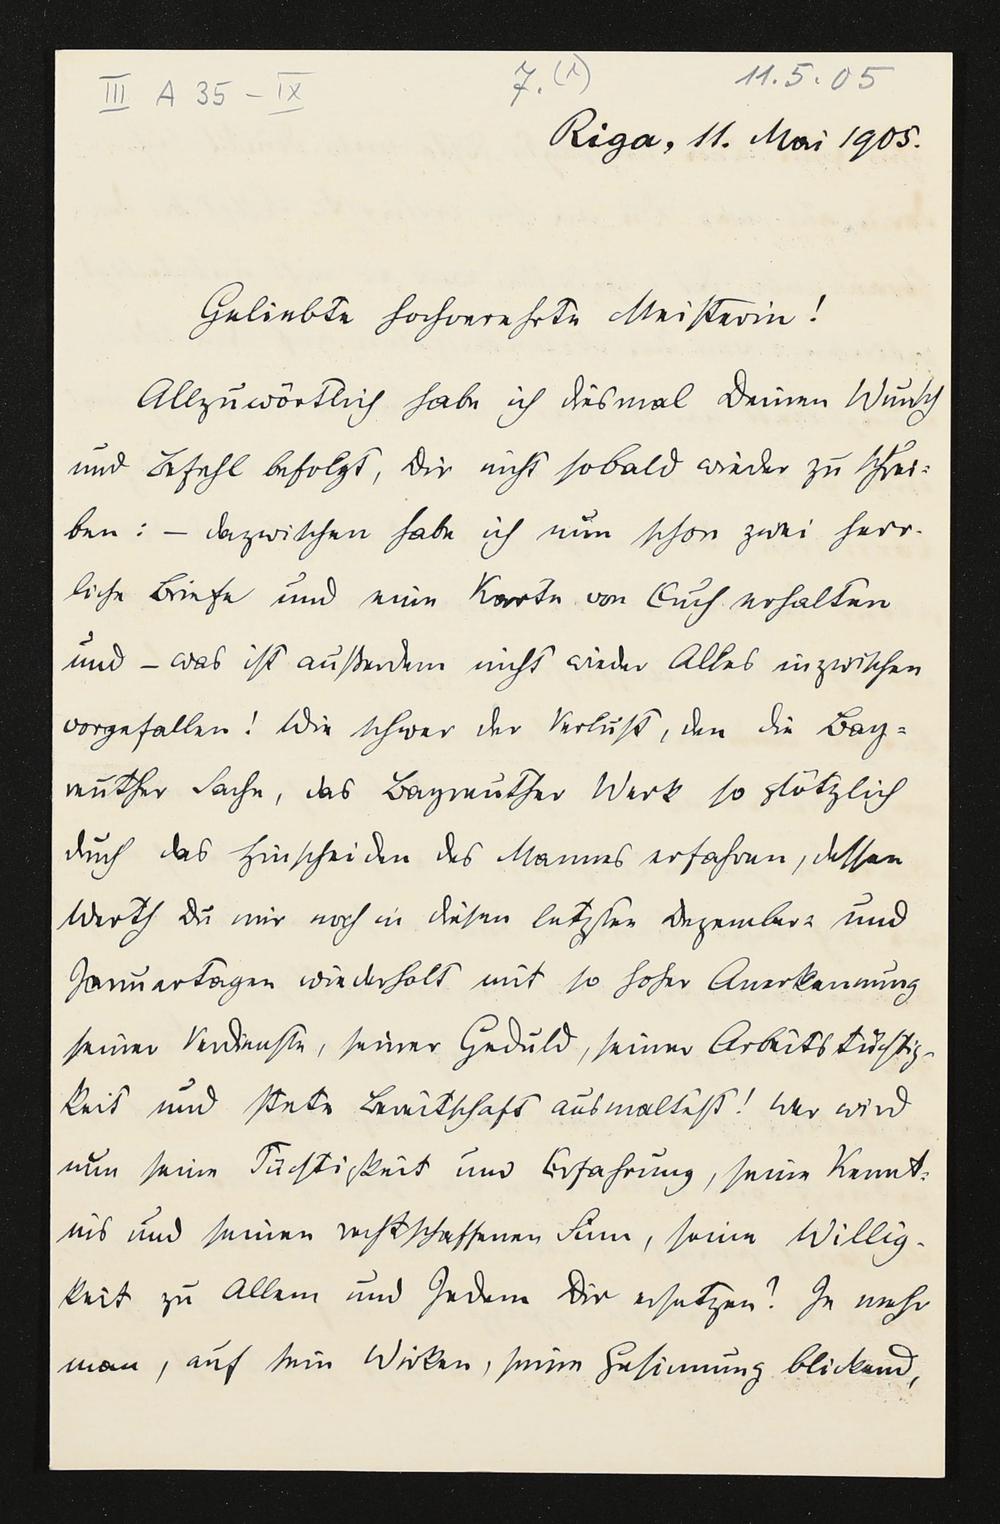 III A 35 – IX
7. (1)
11.5.05
Riga, 11. Mai 1905.
Geliebte hochverehrte Meisterin!
Allzuwörtlich habe ich diesmal Deinen Wunsch
und Befehl befolgt, Dir nicht sobald wieder zu schrei=
ben: – dazwischen habe ich nun schon zwei herr-
liche Briefe und eine Karte von Euch erhalten
und – was ist außerdem nicht wieder Alles inzwischen
vorgefallen! Wie schwer der Verlust, den die Bay=
reuther Sache, das Bayreuther Werk so plötzlich
durch das Hinscheiden des Mannes erfahren, dessen
Werth Du mir noch in diesen letzten Dezember= und
Januartagen wiederholt mit so hoher Anerkennung
seiner Verdienste, seiner Geduld, seiner Arbeitstüchtig-
keit und stete Bereitschaft ausmaltest! Wer wird
nun seine Tüchtigkeit und Erfahrung, seine Kennt=
nis und seinen rechtschaffenen Sinn, seine Willig-
keit zu Allem und Jedem Dir ersetzen? Je mehr
man, auf sein Wirken, seine Gesinnung blickend,